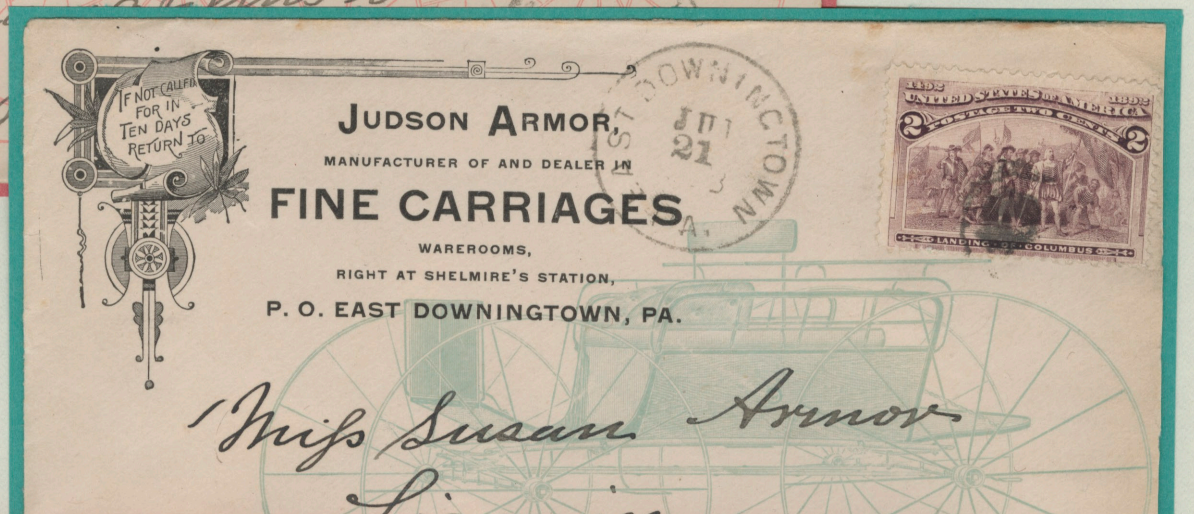 IF NOT CALLED
FOR IN
TEN DAYS
RETURN TO
JUDSON ARMOR,
MANUFACTURER OF AND DEALER IN
FINE CARRIAGES
WAREROOMS,
RIGHT AT SHELMIRE'S STATION,
P. O. EAST DOWNINGTOWN, PA.
EAST DOWNINGTOWN
21
A.
1492 1892
UNITED STATES OF AMERICA
POSTAGE TWO CENTS
2 2
LANDING OF COLUMBUS
Miss Susan Armor